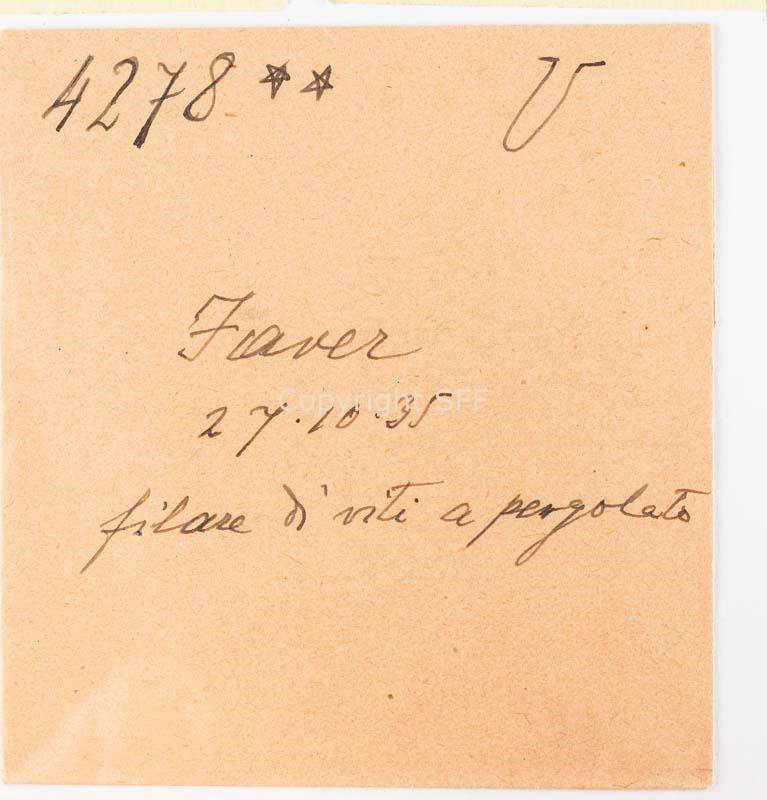 4278 ** V
Faver
Copyright SFF
27.10.35
filare di viti a pergolato